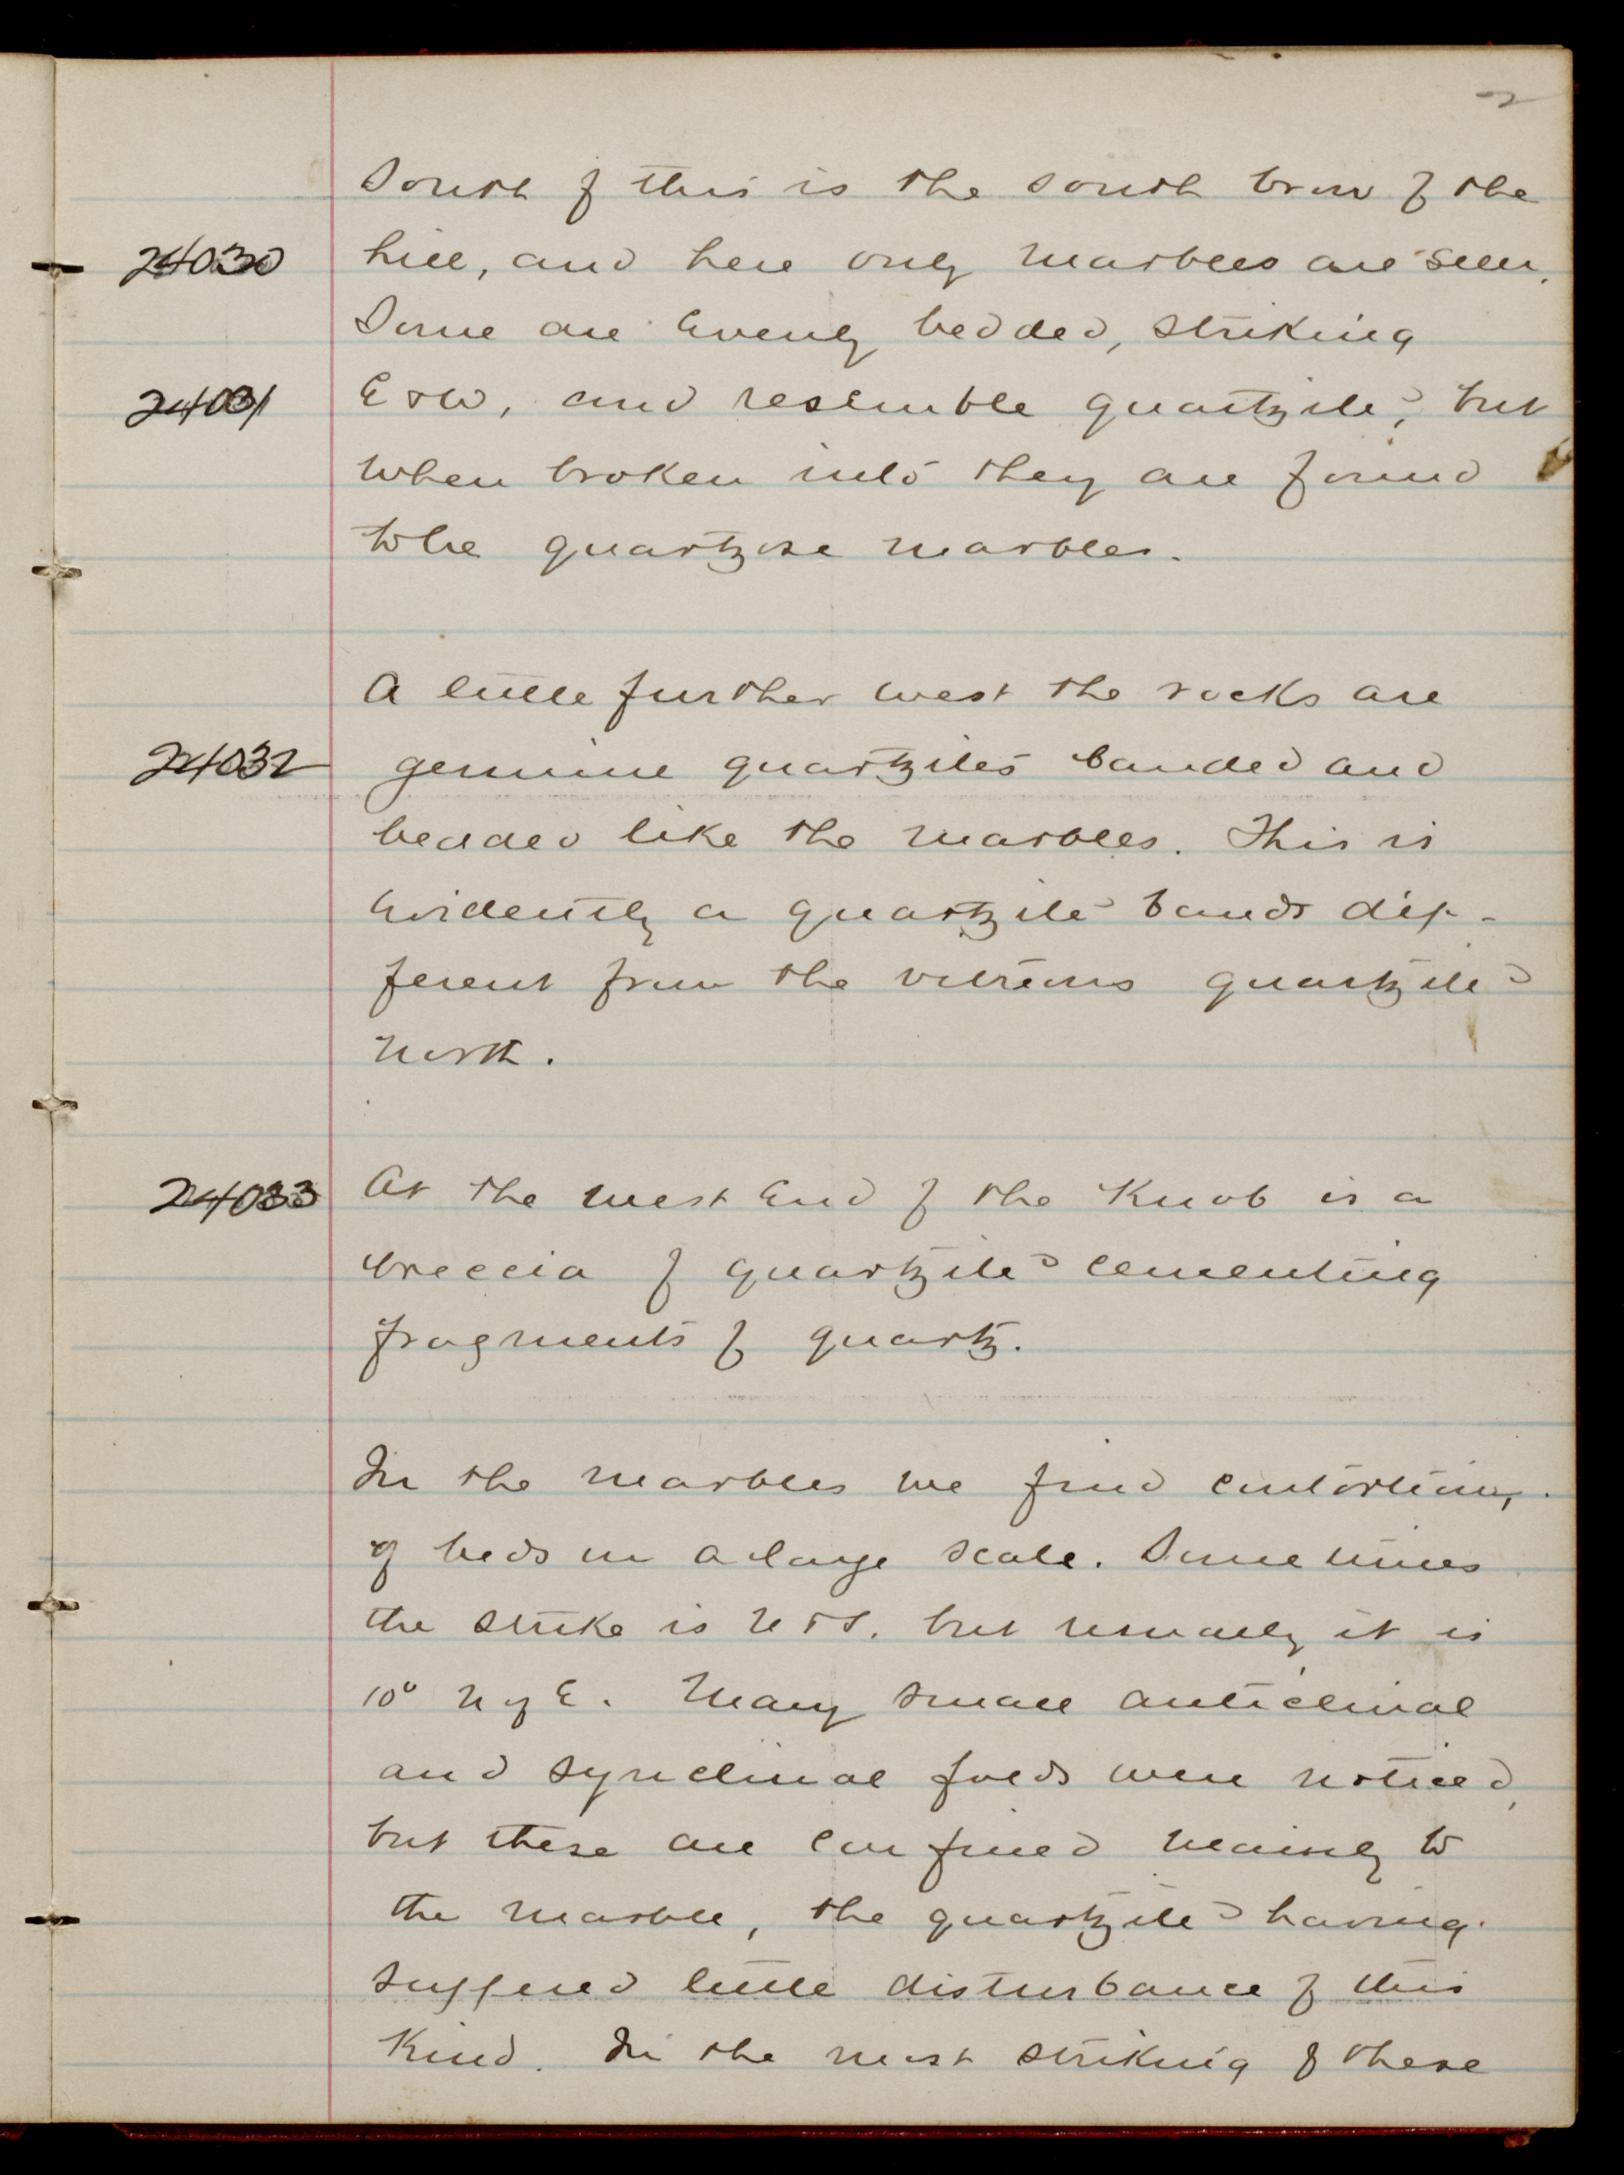 2
South of this is the south brow of the
24030 hill, and here only marbles are seen.
Some are evenly bedded, striking
24031 E & W, and resemble quartzite, but
when broken into they are found
to be quartzose marbles.
A little further west the rocks are
24032 genuine quartzites banded and
bedded like the marbles. This is
evidently a quartzite bands dif-
ferent from the vitreous quartzite
north.
24033 At the west end of the Knob is a
breccia of quartzite cementing
fragments of quartz.
In the marbles we find contortions
of beds on a large scale. Sometimes
the strike is N & S. but usually it is
10° N of E. Many small anticlinal
and synclinal folds were noticed,
but these are confined mainly to
the marble, the quartzite having
suffered little disturbance of this
Kind. In the most striking of these